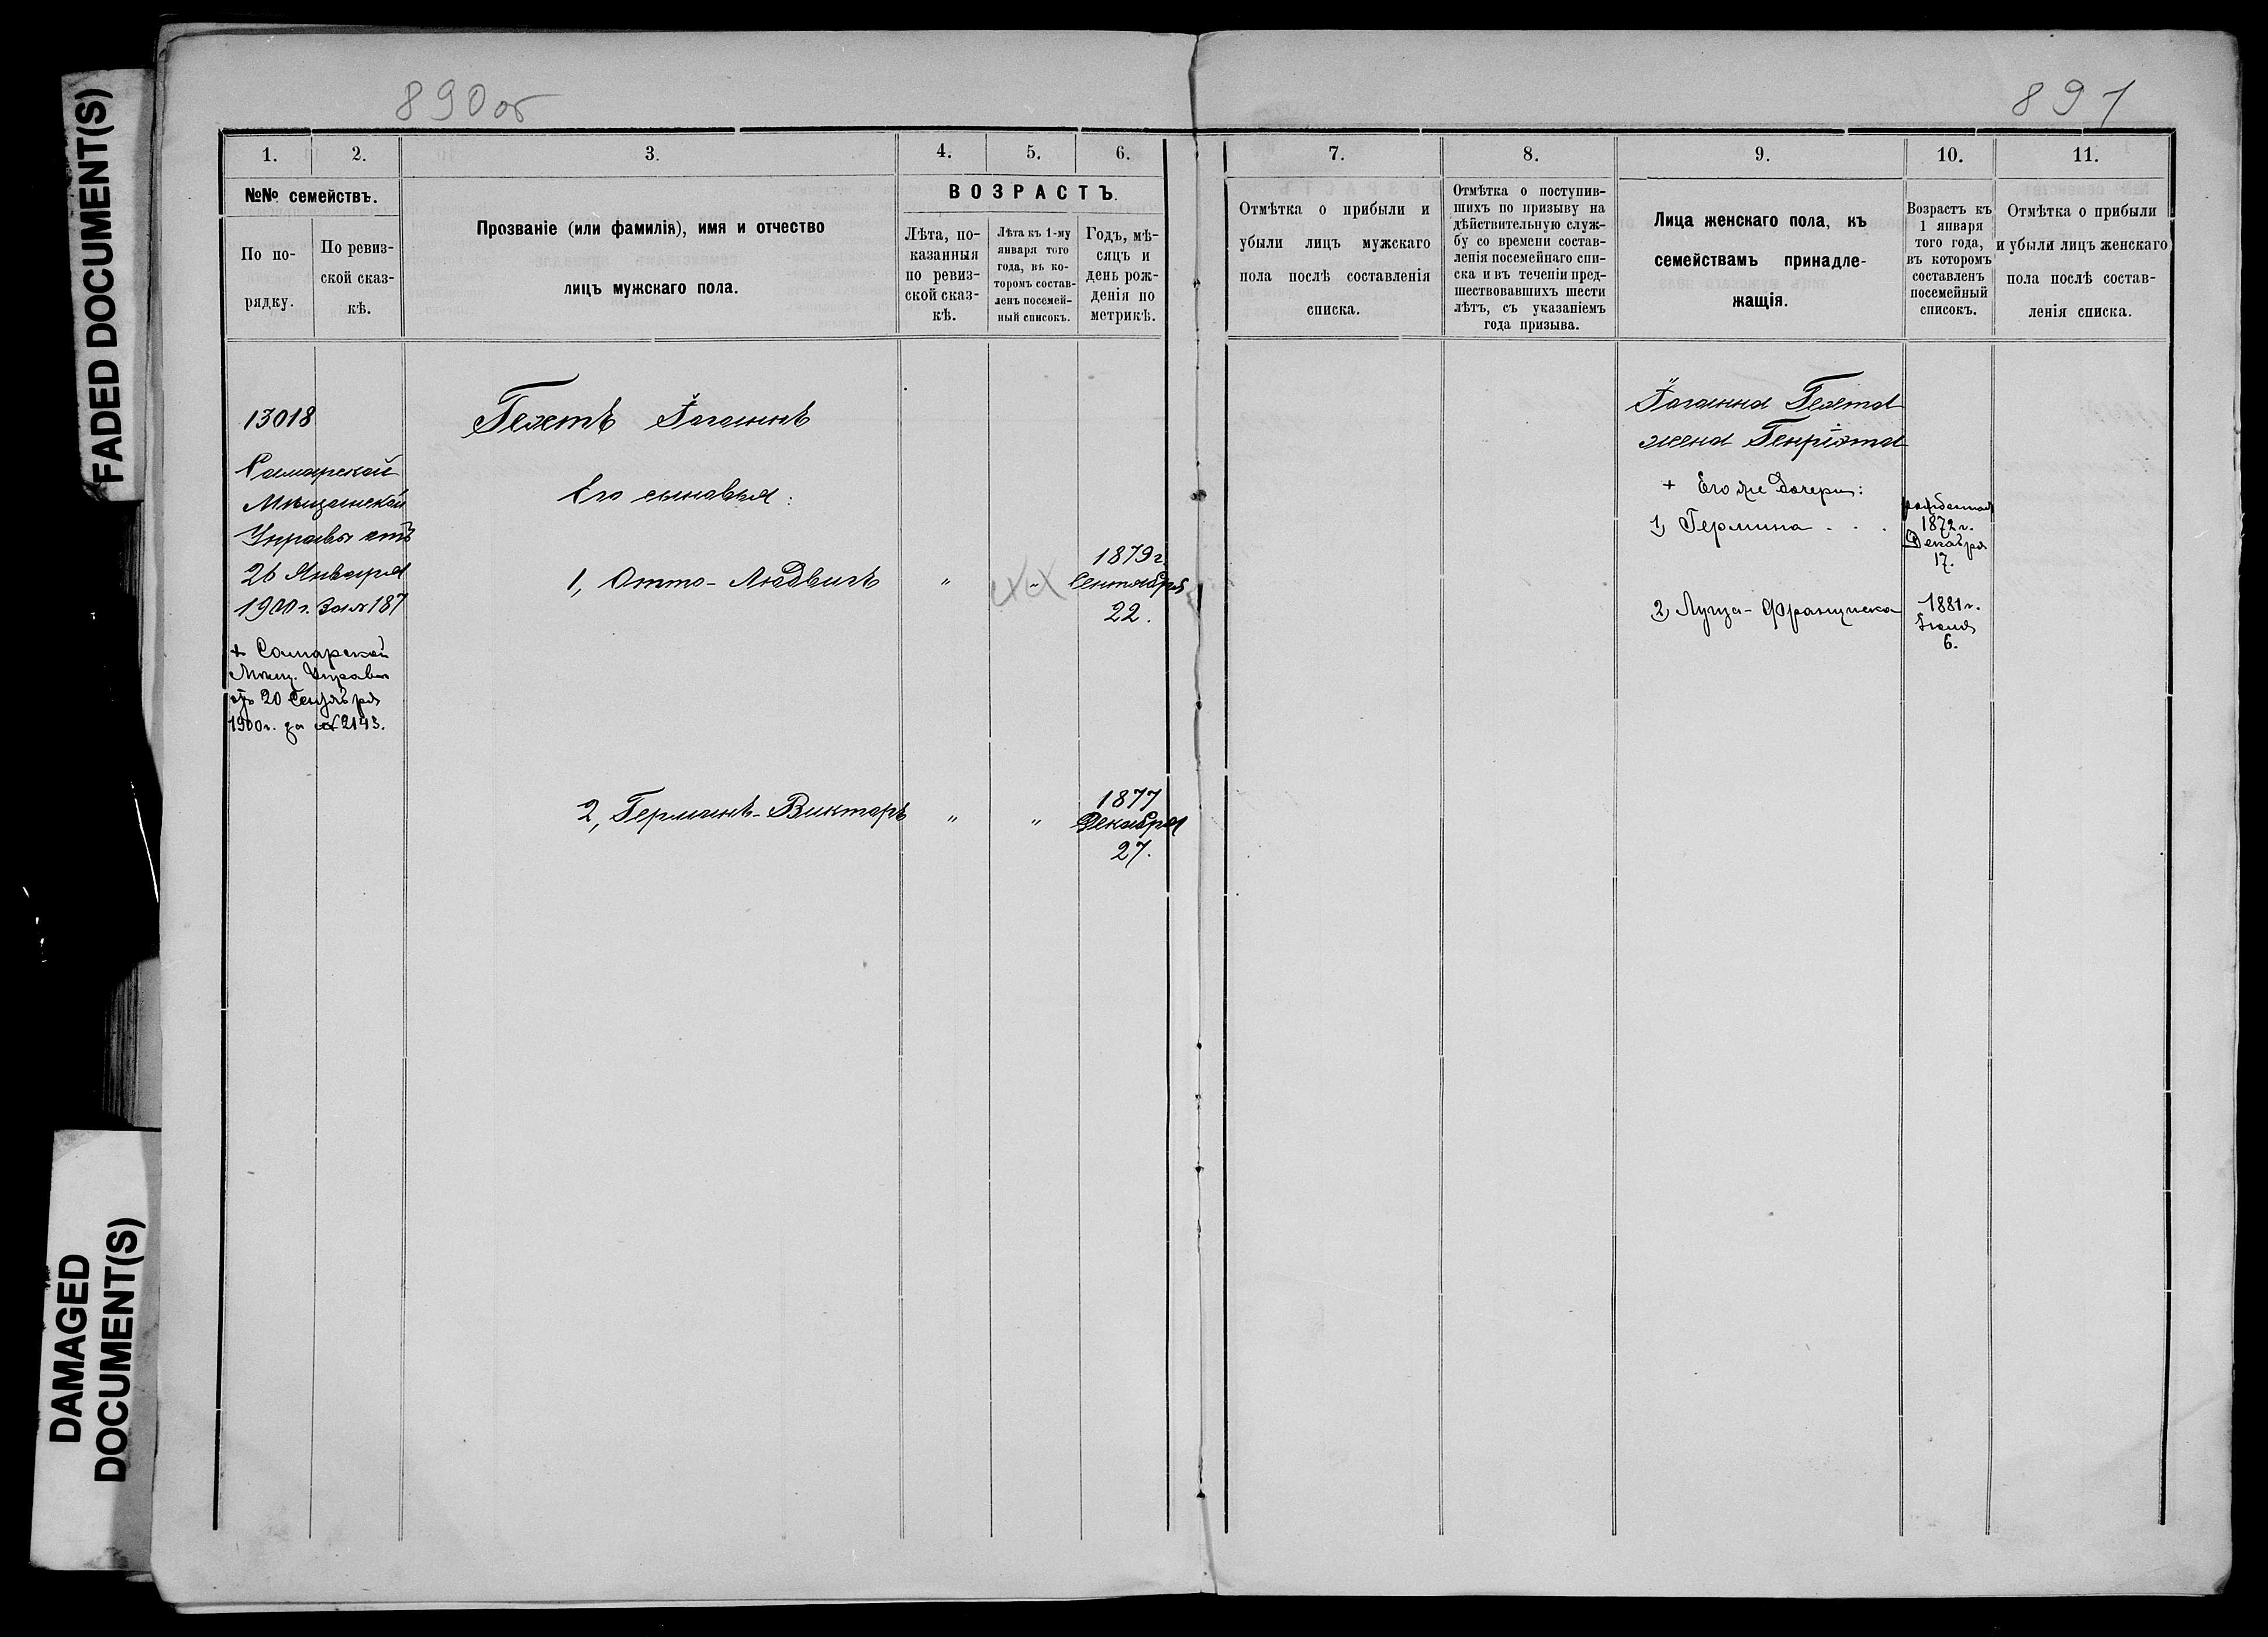 FADED DOCUMENT(S)
DAMAGED
DOCUMENT(S)
890об
1.
2.
3.
4.
5.
6.
№№ семействъ.
По по-
рядку.
По ревиз-
ской сказ-
кѣ.
Прозваніе (или фамилія), имя и отчество
лицъ мужскаго пола.
ВОЗРАСТЪ.
Лѣта, по-
казанныя
по ревиз-
ской сказ-
кѣ.
Лѣта къ 1-му
января того
года, въ ко-
торомъ состав-
ленъ посемей-
ный списокъ.
Годъ, мѣ-
сяцъ и
день рож-
денія по
метрикѣ.
13018
Самарской
Мѣщанской
Управы отъ
26 Января
1900 г. за № 187
+ Самарской
Мѣщ. Управы
отъ 20 Сентября
1900 г. за № 2143.
Гехтъ Іоганнъ
Его сыновья:
1, Отто-Людвигъ " "
1879 г.
Сентября
22.
2, Германъ-Викторъ " "
1877
Декабря
27.
891
7.
8.
9.
10.
11.
Отмѣтка о прибыли и
убыли лицъ мужскаго
пола послѣ составленія
списка.
Отмѣтка о поступив-
шихъ по призыву на
дѣйствительную служ-
бу со времени состав-
ленія посемейнаго спи-
ска и въ теченіи пред-
шествовавшихъ шести
лѣтъ, съ указаніемъ
года призыва.
Лица женскаго пола, къ
семействамъ принадле-
жащія.
Возрастъ къ
1 января
того года,
въ которомъ
составленъ
посемейный
списокъ.
Отмѣтка о прибыли
и убыли лицъ женскаго
пола послѣ состав-
ленія списка.
Іоганна Гехта
жена Генріэта
+ Его же дочери:
1) Гермина . . .
рожденная
1872 г.
Декабря
17.
2) Луиза-Франциска
1881 г.
Іюля
6.